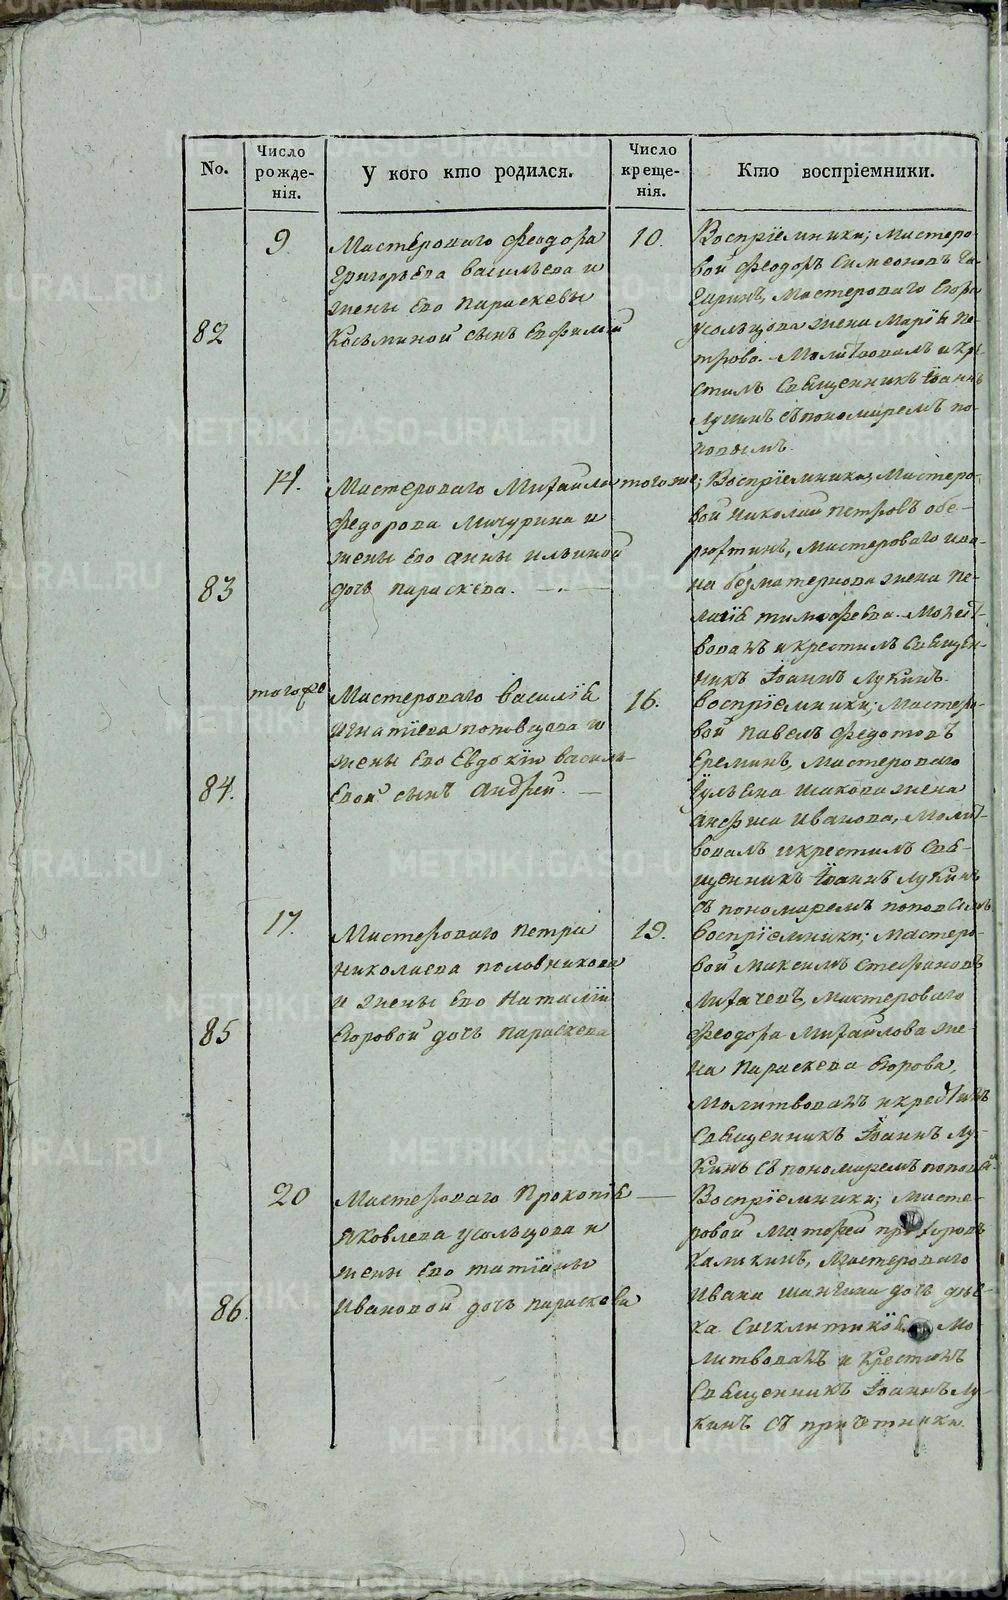 No.
Число рожде-нія.
У кого кто родился.
Число креще-нія.
Кто воспріемники.
82
9.
Мастероваго Феодора
Григорьева Васильева и
жены ево Параскевы
Косьминой сынъ Евфимій
10.
Воспріемники; Мастеро-
вой Феодоръ Симеоновъ Га-
гаринъ, Мастероваго Егора
Усольцова жена Марія Пе-
трова. Молитвовалъ и кре-
стилъ Священникъ Іоаннъ
Лукинъ съ пономаремъ По-
повымъ.
83
14.
Мастероваго Михайла
Федорова Мичурина и
жены ево Анны Ильиной
дочь Параскева.
тогоже;
Воспріемники; Мастеро-
вой Николай Петровъ Обе-
рюхтинъ, Мастероваго Ива-
на Безматернова жена Пе-
лагія Тимофеева. Молит-
вовалъ и крестилъ Священ-
никъ Іоаннъ Лукинъ.
84.
тогоже
Мастероваго Василія
Игнатіева Половцова и
жены ево Евдокіи Василь-
евой сынъ Андрей.
16.
Воспріемники; Мастеро-
вой Павелъ Федотовъ
Ереминъ, Мастероваго
Іульяна Исакова жена
Анфиса Иванова, Молит-
вовалъ и крестилъ Свя-
щенникъ Іоаннъ Лукинъ
съ пономаремъ Поповымъ
85
17.
Мастероваго Петра
Николаева Половникова
и жены ево Наталіи
Егоровой дочь Параскева
19.
Воспріемники; Мастеро-
вой Максимъ Стефановъ
Лихачевъ, Мастероваго
Феодора Михайлова же-
на Параскева Егорова,
Молитвовалъ и крестилъ
Священникъ Іоаннъ Лу-
кинъ съ пономаремъ Поповы
86.
20
Мастероваго Прокопія
Яковлева Усольцова и
жены ево Татіаны
Ивановой дочь Параскева
Воспріемники; Масте-
ровой Матфей
Калкинъ, Мастероваго
Ивана Шангина дочь дѣв-
ка Сигклитикія Мо-
литвовалъ и крестилъ
Священникъ Іоаннъ Лу-
кинъ съ причетники.
METRIKI.GASO-URAL.RU